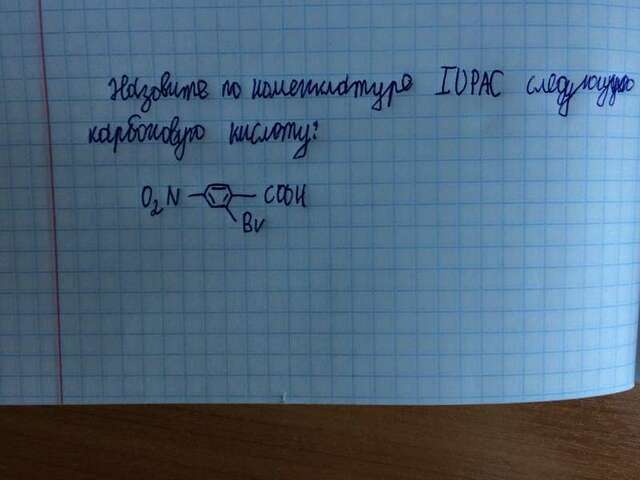 Назовите по номенклатуре IUPAC следующую
карбоновую кислоту:
O₂N COOH
Br